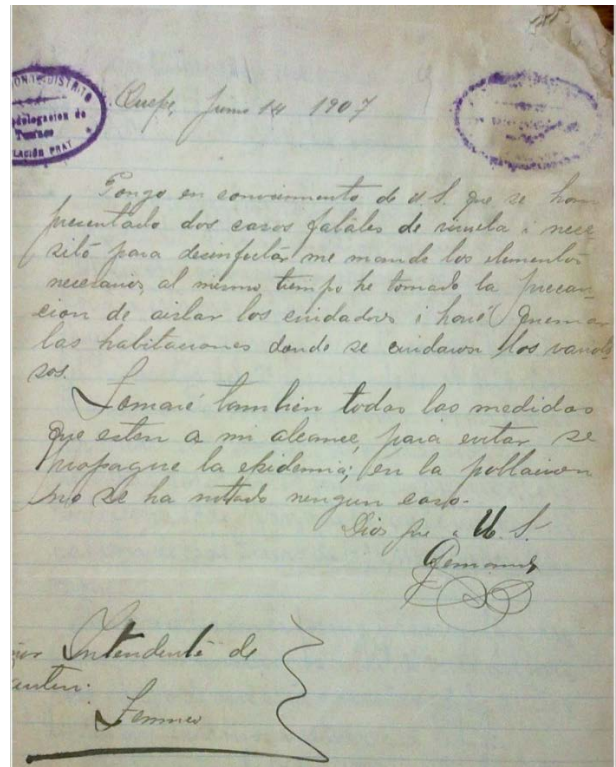 185
DISTRITO
delegacion de
Temuco
LACIÓN PRAT
Quepe, junio 14 1907
Pongo en conocimiento de U S. que se han
presentado dos casos fatales de viruela i nece-
sitó para desinfectar me mande los elementos
necesarios, al mismo tiempo he tomado la precau-
cion de aislar los cuidadores i haré quemar
las habitaciones donde se cuidaron los vario-
sos.
Tomaré tambien todas las medidas
que esten a mi alcance, para evitar se
propague la epidemia; en la poblacion
no se ha notado ningun caso.
Dios gue a U. S.
Intendente de
autin.
Temuco